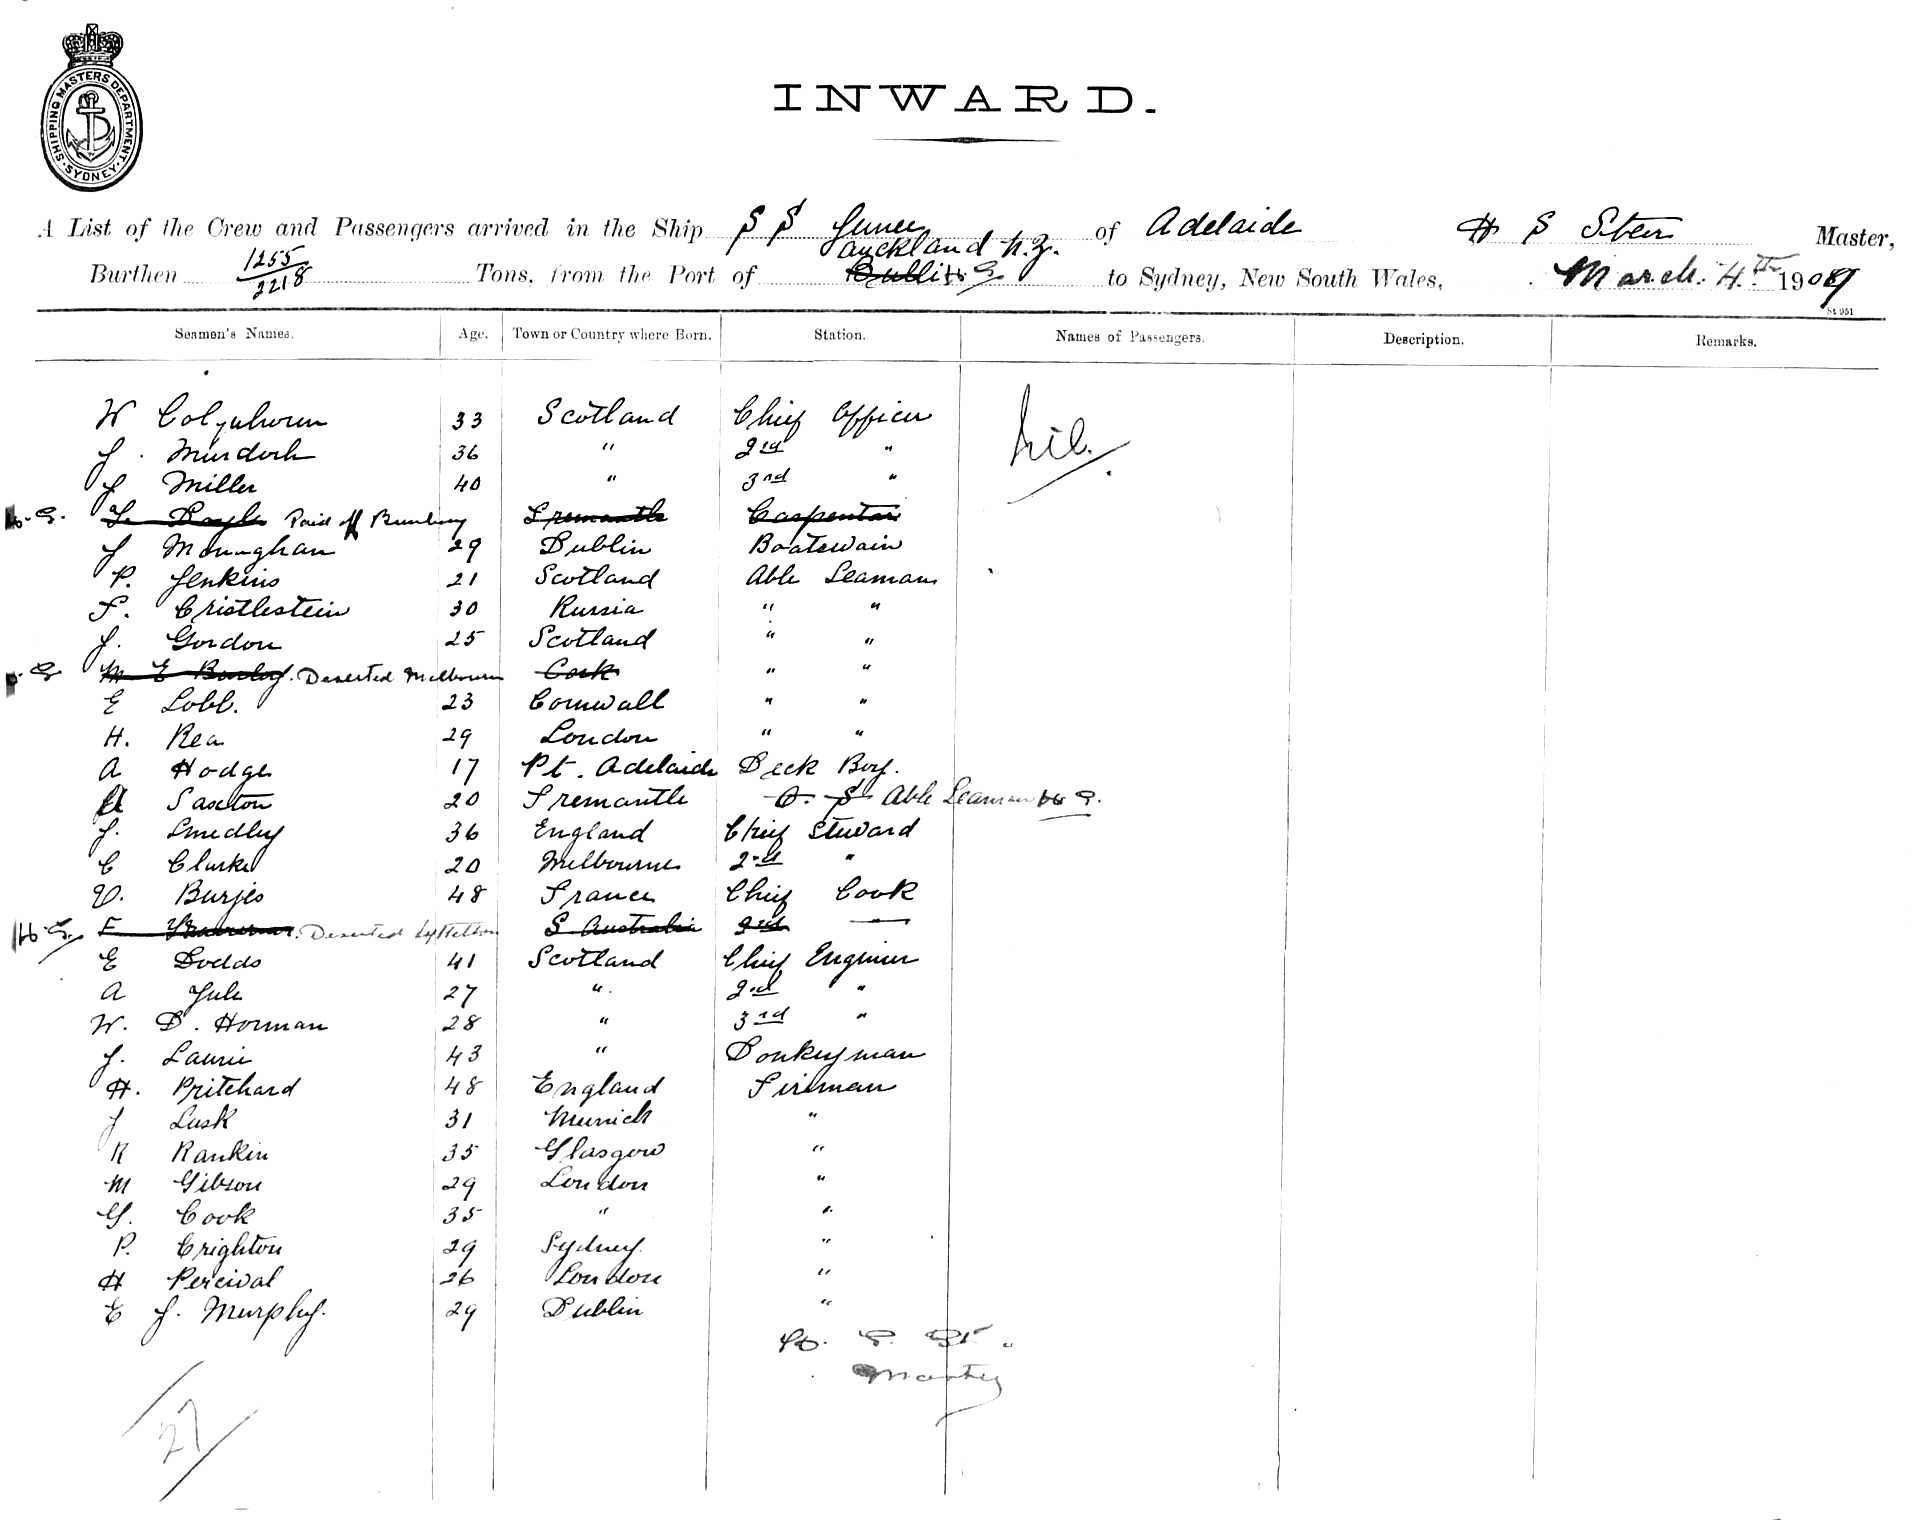 SHIPPING MASTERS DEPARTMENT · SYDNEY ·
INWARD.
A List of the Crew and Passengers arrived in the Ship S S Junee of Adelaide H S Steer Master,
Auckland N.Z.
Burthen 1255/2218 Tons, from the Port of to Sydney, New South Wales, March 4th 1909
St 951
Seamen's Names. Age. Town or Country where Born. Station. Names of Passengers. Description. Remarks.
W Colquhoun 33 Scotland Chief Officer Nil.
J. Murdoch 36 " 2nd "
J Miller 40 " 3rd "
H.S. Doyle Paid off Bunbury Fremantle Carpenter
J Monaghan 29 Dublin Boatswain
P. Jenkins 21 Scotland Able Seaman
F. Cristlestein 30 Russia " "
J. Gordon 25 Scotland " "
H.S. M E Deserted Melbourne Cork " "
E Lobb. 23 Cornwall " "
H. Rea 29 London " "
A Hodge 17 Pt. Adelaide Deck Boy.
Saxton 20 Fremantle O. S Able Seaman H S.
J. Smedley 36 England Chief Steward
C Clarke 20 Melbourne 2nd "
V. Burjes 48 France Chief Cook
H.S. F Deserted Lyttelton S Australia 2nd —
E Dodds 41 Scotland Chief Engineer
A Yule 27 " 2nd "
W. D. Horman 28 " 3rd "
J. Laurie 43 " Donkeyman
H. Pritchard 48 England Fireman
J Lusk 31 Munich "
R Rankin 35 Glasgow "
M Gibson 29 London "
G. Cook 35 " "
P. Crighton 29 Sydney "
H Percival 26 London "
E J. Murphy. 29 Dublin "
H. S. St
Master
27